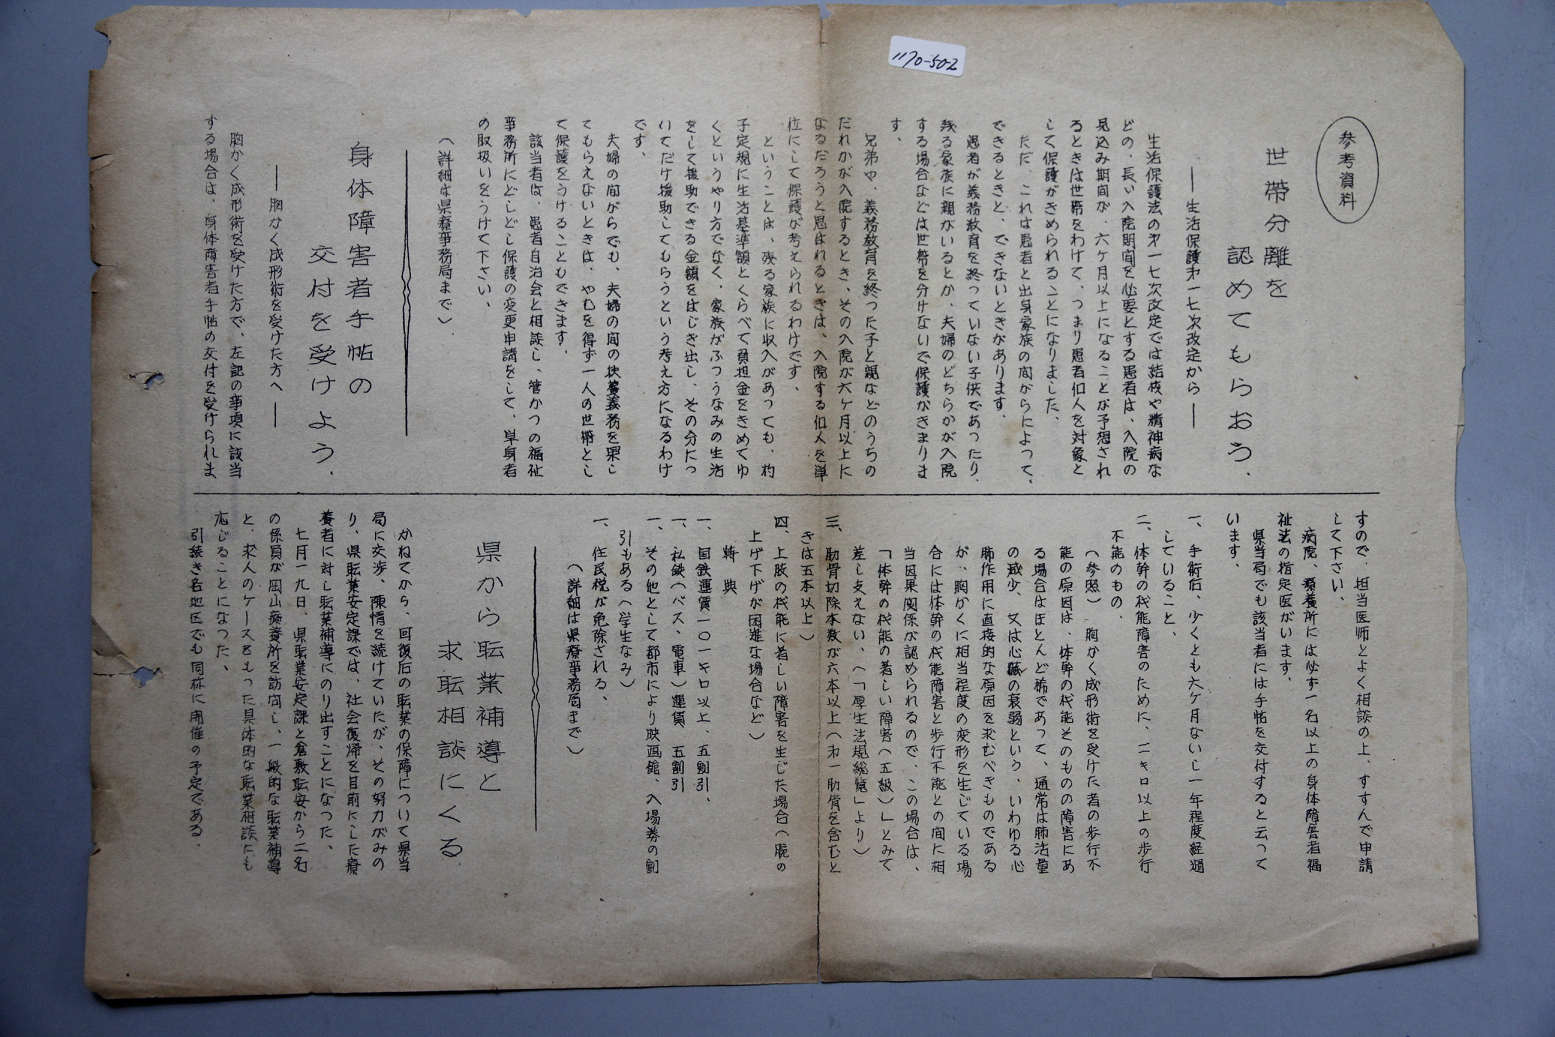 1170-502
参考資料
世帯分離を
認めてもらおう、
――生活保護才一七次改定から――
生活保護法の才一七次改定では結核や精神病な
どの、長い入院期間を必要とする患者は、入院の
見込み期間が、六ケ月以上になることが予想され
るときは世帯をわけて、つまり患者個人を対象と
して保護がきめられることになりました、
ただ、これは患者と出身家族の間がらによって、
できるときと、できないときがあります、
患者が義務教育を終っていない子供であったり、
残る家族に親がいるとか、夫婦のどちらかが入院
する場合などは世帯を分けないで保護がきまりま
す、
兄弟や、義務教育を終った子と親などのうちの
だれかが入院するとき、その入院が六ケ月以上に
なるだろうと思はれるときは、入院する個人を単
位にして保護が考えられるわけです、
ということは、残る家族に収入があっても、杓
子定規に生活基準額とくらべて負担金をきめてゆ
くというやり方でなく、家族がふつうなみの生活
をして援助できる金額をはじき出し、その分につ
いてだけ援助してもらうという考え方になるわけ
です、
夫婦の間がらでも、夫婦の間の扶養義務を果し
てもらえないときは、やむを得ず一人の世帯とし
て保護をうけることもできます、
該当者は、患者自治会と相談し、管かつの福祉
事務所にどしどし保護の変更申請をして、単身者
の取扱いをうけて下さい、
（詳細は県療事務局まで）
身体障害者手帖の
交付を受けよう、
――胸かく成形術を受けた方へ――
胸かく成形術を受けた方で、左記の事項に該当
する場合は、身体障害者手帖の交付を受けられま
すので、担当医師とよく相談の上、すすんで申請
して下さい、
病院、療養所には必ず一名以上の身体障害者福
祉法の指定医がいます、
県当局でも該当者には手帖を交付すると云って
います、
一、手術后、少くとも六ケ月ないし一年程度経過
していること、
二、体幹の機能障害のために、二キロ以上の歩行
不能のもの、
（参照）　胸かく成形術を受けた者の歩行不
能の原因は、体幹の機能そのものの障害にあ
る場合はほとんど稀であって、通常は肺活量
の減少、又は心臓の衰弱という、いわゆる心
肺作用に直接的な原因を求むべきものである
が、胸かくに相当程度の変形を生じている場
合には体幹の機能障害と歩行不能との間に相
当因果関係が認められるので、この場合は、
「体幹の機能の著しい障害（五級）」とみて
差し支えない、（「厚生法規総覧」より）
三、肋骨切除本数が六本以上（才一肋骨を含むと
きは五本以上）
四、上肢の機能に著しい障害を生じた場合（腕の
上げ下げが困難な場合など）
特典
一、国鉄運賃一〇一キロ以上、五割引、
一、私鉄（バス、電車）運賃　五割引
一、その他として都市により映画館、入場券の割
引もある（学生なみ）
一、住民税が免除される、
（詳細は県療事務局まで）
県から転業補導と
求転相談にくる
かねてから、回復后の転業の保障について県当
局に交渉、陳情を続けていたが、その努力がみの
り、県転業安定課では、社会復帰を目前にした療
養者に対し転業補導にのり出すことになった、
七月一九日、県転業安定課と倉敷転安から二名
の係員が岡山療養所を訪問し、一般的な転業補導
と、求人のケースをもった具体的な転業相談にも
応じることになった、
引続き各地区でも同様に開催の予定である、